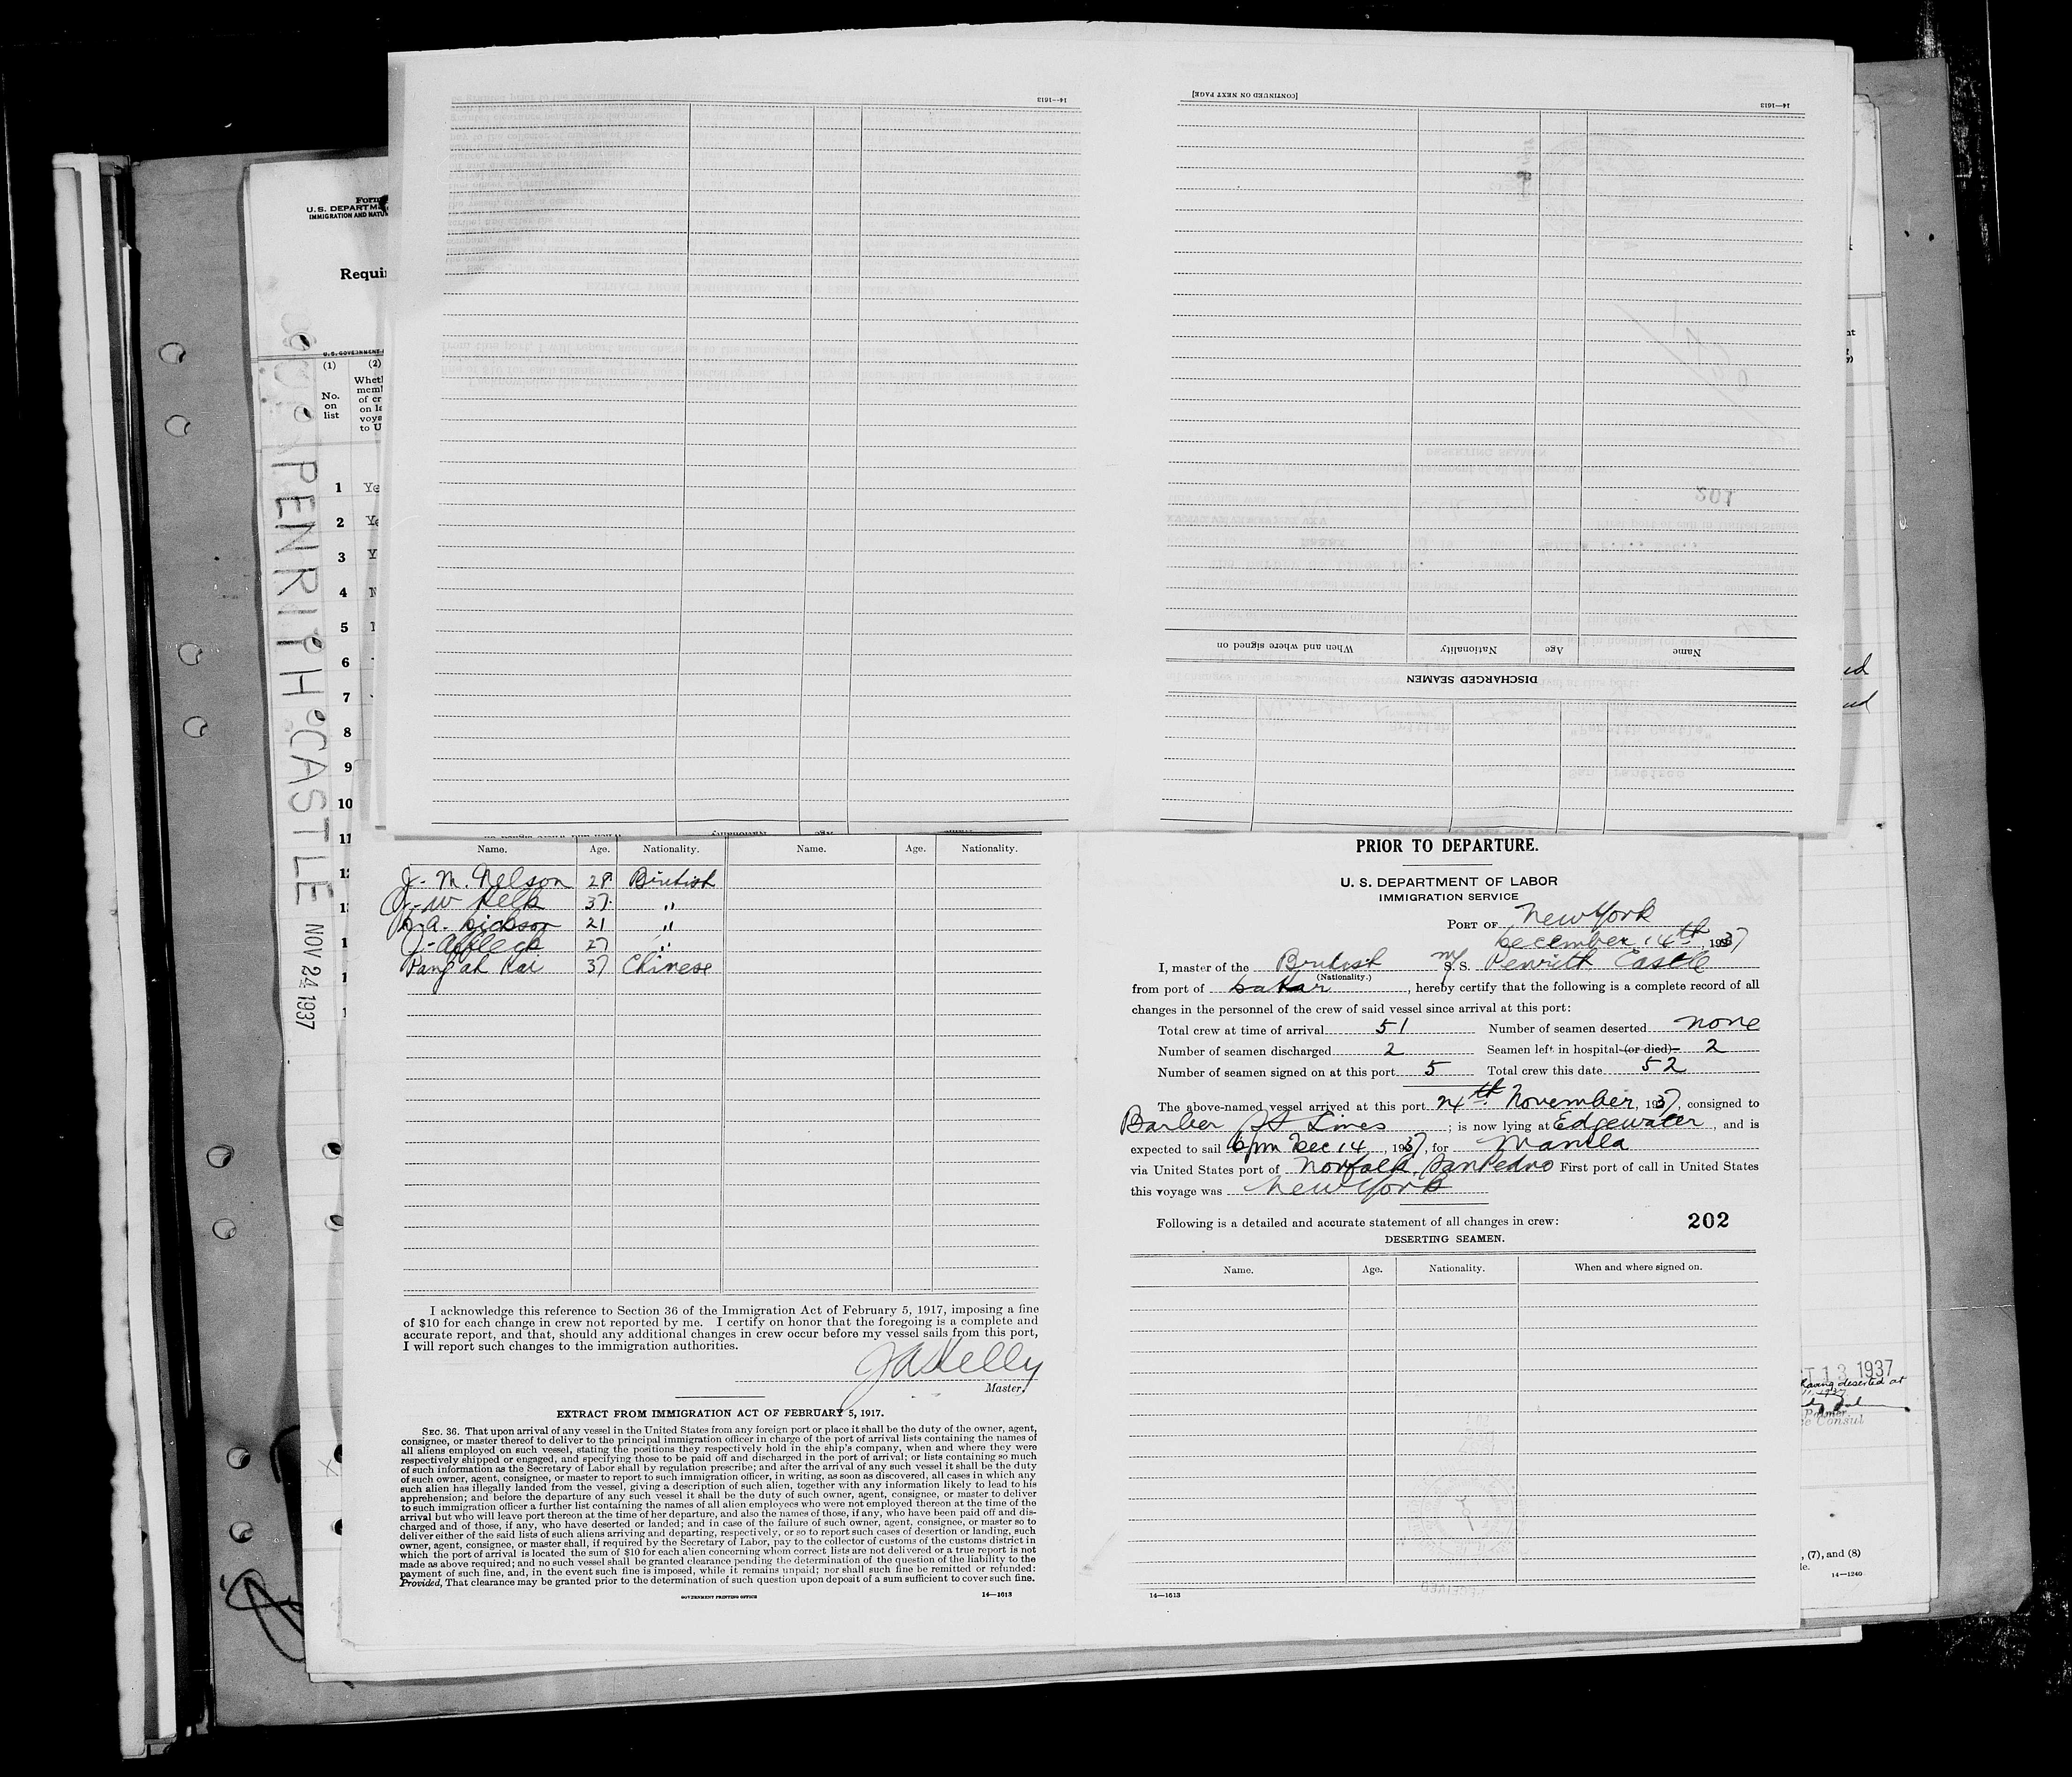 14—1613
[CONTINUED ON NEXT PAGE]
14—1613
When and where signed on
Nationality
Age
Name
DISCHARGED SEAMEN
Form
U. S. DEPARTM
IMMIGRATION AND NATU
Requi
U. S. GOVERNMENT
(1)
(2)
No.
on
list
Whet
meml
of cr
on la
voya
to U
1 Ye
2 Ye
3 Y
4 N
5
6
7
8
9
10
11
PENRITH CASTLE NOV 24 1937
Name. Age. Nationality. Name. Age. Nationality.
J. M. Nelson 28 British
J. W 37 "
A. Dickson 21 "
J. Affleck 27 "
Kai 37 Chinese
I acknowledge this reference to Section 36 of the Immigration Act of February 5, 1917, imposing a fine
of $10 for each change in crew not reported by me. I certify on honor that the foregoing is a complete and
accurate report, and that, should any additional changes in crew occur before my vessel sails from this port,
I will report such changes to the immigration authorities.
JAKelly
Master.
EXTRACT FROM IMMIGRATION ACT OF FEBRUARY 5, 1917.
SEC. 36. That upon arrival of any vessel in the United States from any foreign port or place it shall be the duty of the owner, agent,
consignee, or master thereof to deliver to the principal immigration officer in charge of the port of arrival lists containing the names of
all aliens employed on such vessel, stating the positions they respectively hold in the ship's company, when and where they were
respectively shipped or engaged, and specifying those to be paid off and discharged in the port of arrival; or lists containing so much
of such information as the Secretary of Labor shall by regulation prescribe; and after the arrival of any such vessel it shall be the duty
of such owner, agent, consignee, or master to report to such immigration officer, in writing, as soon as discovered, all cases in which any
such alien has illegally landed from the vessel, giving a description of such alien, together with any information likely to lead to his
apprehension; and before the departure of any such vessel it shall be the duty of such owner, agent, consignee, or master to deliver
to such immigration officer a further list containing the names of all alien employees who were not employed thereon at the time of the
arrival but who will leave port thereon at the time of her departure, and also the names of those, if any, who have been paid off and dis-
charged and of those, if any, who have deserted or landed; and in case of the failure of such owner, agent, consignee, or master so to
deliver either of the said lists of such aliens arriving and departing, respectively, or so to report such cases of desertion or landing, such
owner, agent, consignee, or master shall, if required by the Secretary of Labor, pay to the collector of customs of the customs district in
which the port of arrival is located the sum of $10 for each alien concerning whom correct lists are not delivered or a true report is not
made as above required; and no such vessel shall be granted clearance pending the determination of the question of the liability to the
payment of such fine, and, in the event such fine is imposed, while it remains unpaid; nor shall such fine be remitted or refunded:
Provided, That clearance may be granted prior to the determination of such question upon deposit of a sum sufficient to cover such fine.
GOVERNMENT PRINTING OFFICE 14—1613
PRIOR TO DEPARTURE.
U. S. DEPARTMENT OF LABOR
IMMIGRATION SERVICE
PORT OF New York
December 14th, 1937
I, master of the British M/S. S. Penrith Castle
(Nationality.)
from port of Dakar, hereby certify that the following is a complete record of all
changes in the personnel of the crew of said vessel since arrival at this port:
Total crew at time of arrival 51 Number of seamen deserted none
Number of seamen discharged 2 Seamen left in hospital (or died) 2
Number of seamen signed on at this port 5 Total crew this date 52
The above-named vessel arrived at this port 24th November, 1937, consigned to
Barber SS Lines; is now lying at Edgewater, and is
expected to sail 6pm Dec 14, 1937, for Manila
via United States port of Norfolk, San Pedro First port of call in United States
this voyage was New York
Following is a detailed and accurate statement of all changes in crew: 202
DESERTING SEAMEN.
Name. Age. Nationality. When and where signed on.
14—1613
T 13 1937
having deserted at
Consul
, (7), and (8)
le.
14—1240